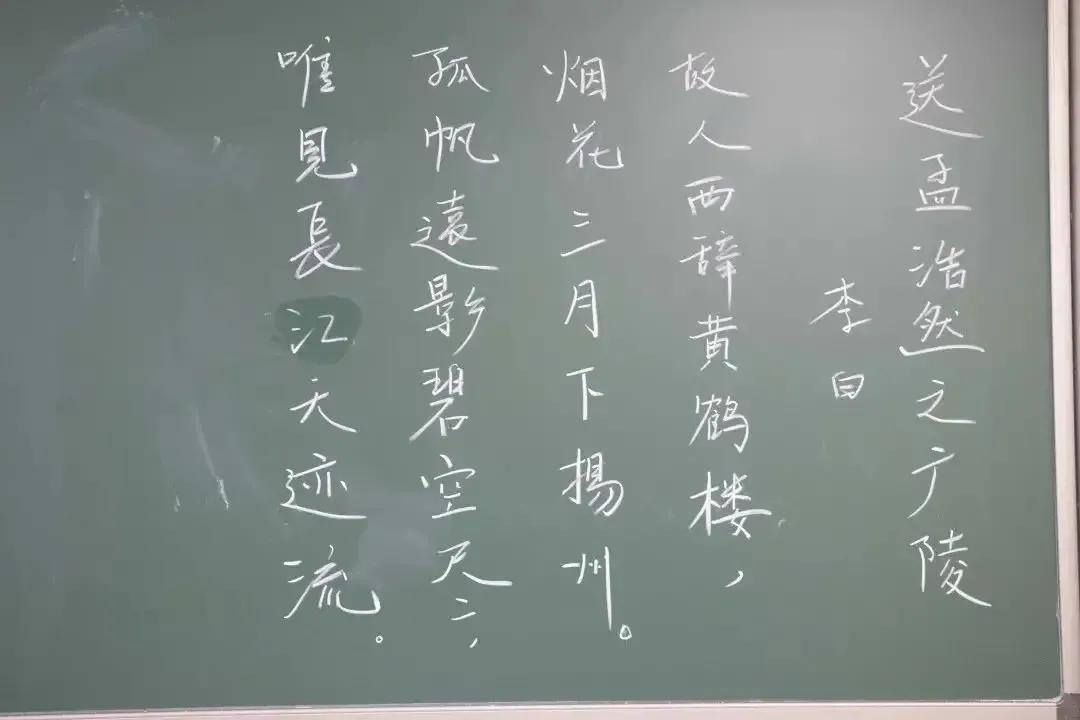 送孟浩然之广陵
李白
故人西辞黄鹤楼，
烟花三月下揚州。
孤帆遠影碧空尺二，
唯見長江天迹流。